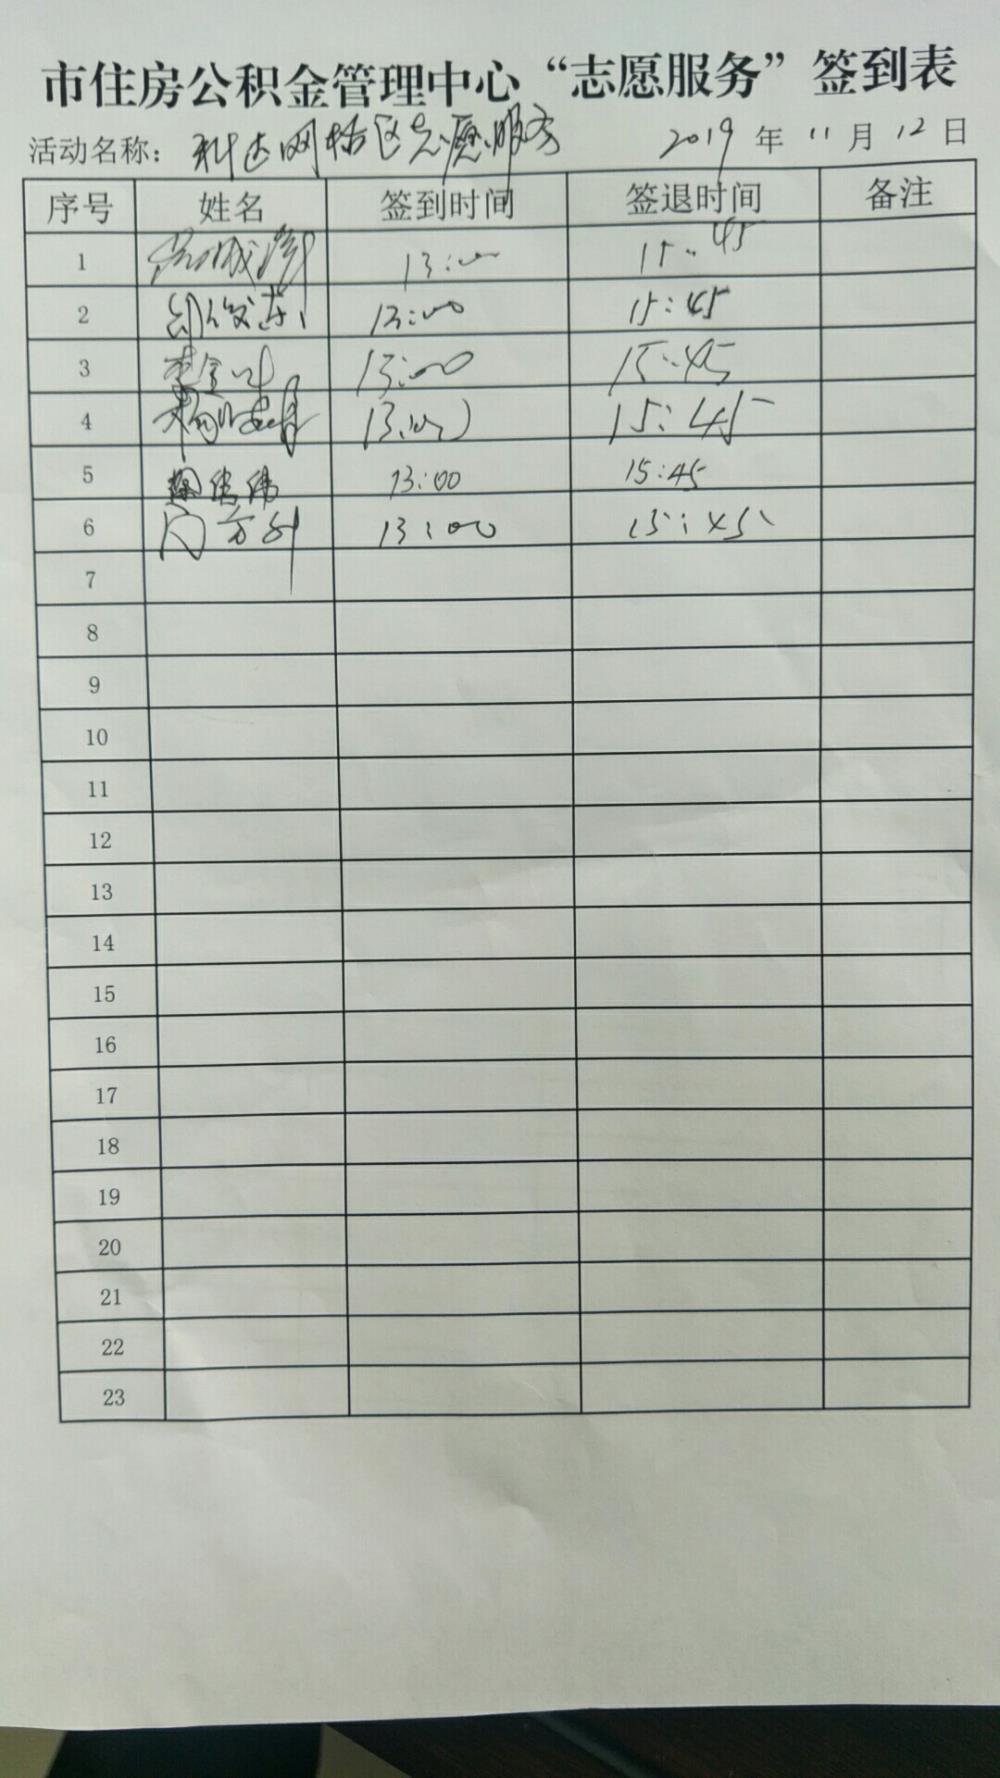 市住房公积金管理中心“志愿服务”签到表
活动名称：科达网格区志愿服务 2019年 11月 12日
序号 姓名 签到时间 签退时间 备注
1 13:00 15:45
2 13:00 15:45
3 13:00 15:45
4 13:00 15:45
5 13:00 15:45
6 13:00 15:45
7
8
9
10
11
12
13
14
15
16
17
18
19
20
21
22
23